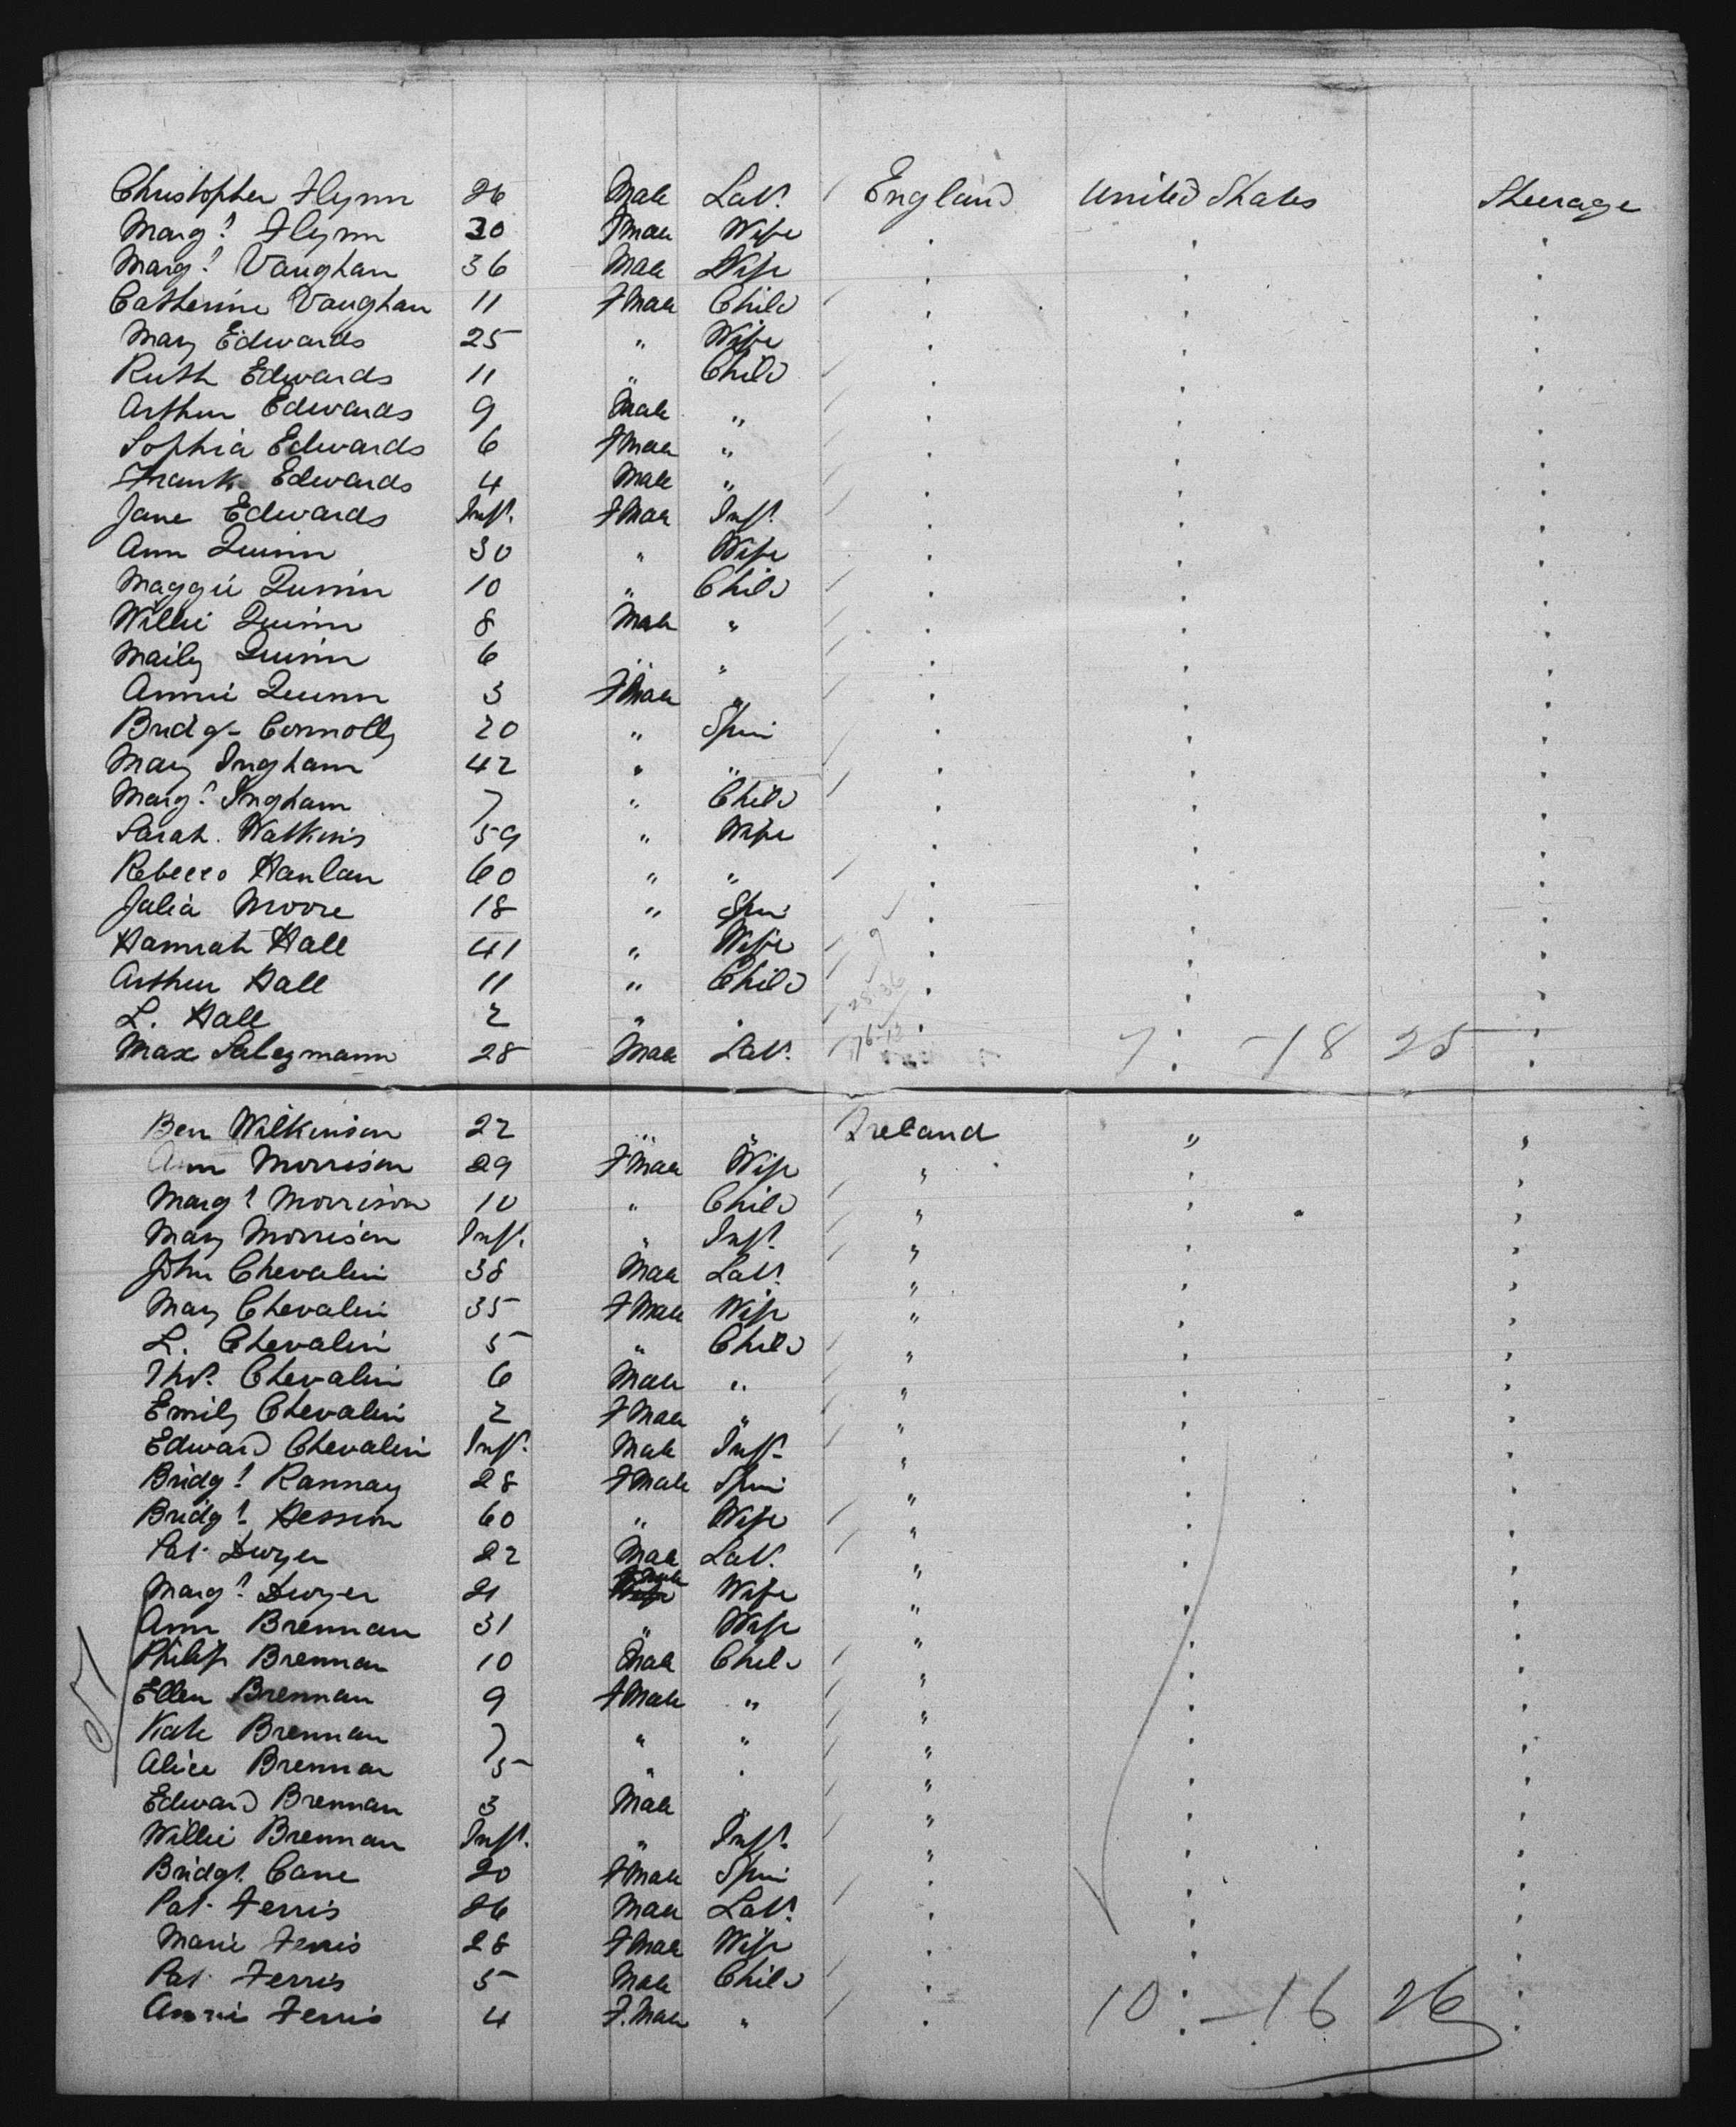 Christopher Flynn 26 Male Lab. England United States Steerage
Marg.t Flynn 30 Fmale Wife " " "
Marg.t Vaughan 36 Male Wife " " "
Catherine Vaughan 11 Fmale Child " " "
Mary Edwards 25 " Wife " " "
Ruth Edwards 11 " Child " " "
Arthur Edwards 9 Male " " " "
Sophia Edwards 6 Fmale " " " "
Frank Edwards 4 Male " " " "
Jane Edwards Inft. Fmale Inft. " " "
Ann Quinn 30 " Wife " " "
Maggie Quinn 10 " Child " " "
Willie Quinn 8 Male " " " "
Maily Quinn 6 " " " " "
Annie Quinn 3 Fmale " " " "
Bridgt Connolly 20 " Spin " " "
Mary Ingham 42 " " " " "
Marg.t Ingham 7 " Child " " "
Sarah Watkins 59 " Wife " " "
Rebecca Hanlan 60 " " " " "
Julia Moore 18 " Spin " " "
Hannah Hall 41 " Wife " " "
Arthur Hall 11 " Child " " "
L. Hall 2 " " " " "
Max 28 Male Lab. " 7 - 18 25 "
Ben Wilkinson 22 " " Ireland " "
Ann Morrison 29 Fmale Wife " " "
Marg.t Morrison 10 " Child " " "
Mary Morrison Inft. " Inft. " " "
John Chevalin 38 Male Lab. " " "
Mary Chevalin 35 Fmale Wife " " "
L. Chevalin 5 " Child " " "
Thos. Chevalin 6 Male " " " "
Emily Chevalin 2 Fmale " " " "
Edward Chevalin Inft. Male Inft. " " "
Bridg.t Rannay 28 Fmale Spin " " "
Bridg.t Hession 60 " Wife " " "
Pat. Dwyer 22 Male Lab. " " "
Marg.t Dwyer 21 Fmale Wife " " "
Ann Brennan 31 " Wife " " "
Philip Brennan 10 Male Child " " "
Ellen Brennan 9 Fmale " " " "
Kate Brennan 7 " " " " "
Alice Brennan 5 " " " " "
Edward Brennan 3 Male " " " "
Willie Brennan Inft. " Inft. " " "
Bridgt. Cane 20 Fmale Spin " " "
Pat. Ferris 26 Male Lab. " " "
Marie Ferris 28 Fmale Wife " " "
Pat. Ferris 5 Male Child " " "
Annie Ferris 4 F.Male " " 10 - 16 26 "